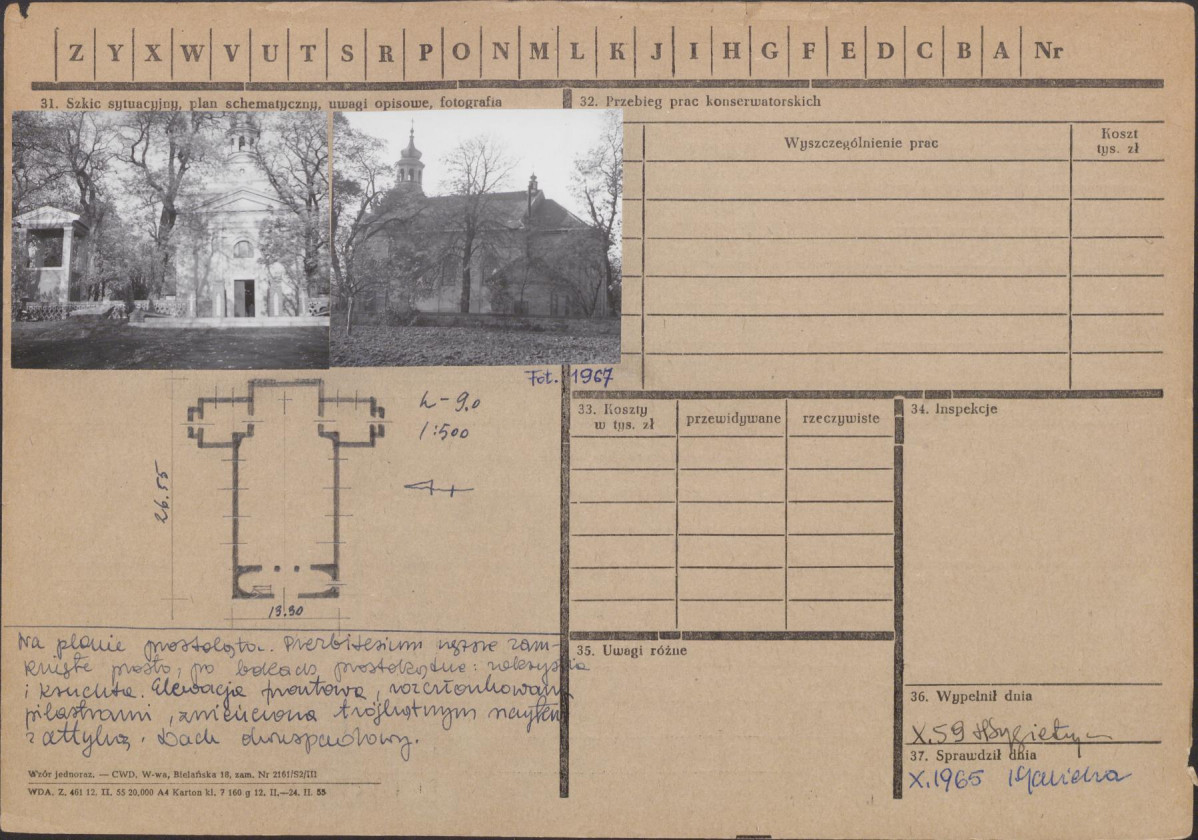 Z Y X W V U T S R P O N M L K J I H G F E D C B A Nr
31. Szkic sytuacyjny, plan schematyczny, uwagi opisowe, fotografia
Fot. 1967
h - 9.0
1:500
26.55
13.30
Na planie prostokąta. Prezbiterium węższe zam-
knięte prosto, po bokach prostokątne: zakrystia
i kruchta. Elewacja frontowa, rozczłonkowana
pilastrami, zwieńczona trójkątnym
z attyką. Dach dwuspadowy.
Wzór jednoraz. — CWD, W-wa, Bielańska 18, zam. Nr 2161/52/III
WDA. Z. 461 12. II. 55 20,000 A4 Karton kl. 7 160 g 12. II.—24. II. 55
32. Przebieg prac konserwatorskich
Wyszczególnienie prac
Koszt
tys. zł
33. Koszty
w tys. zł
przewidywane
rzeczywiste
34. Inspekcje
35. Uwagi różne
36. Wypełnił dnia
X.59
37. Sprawdził dnia
X.1965